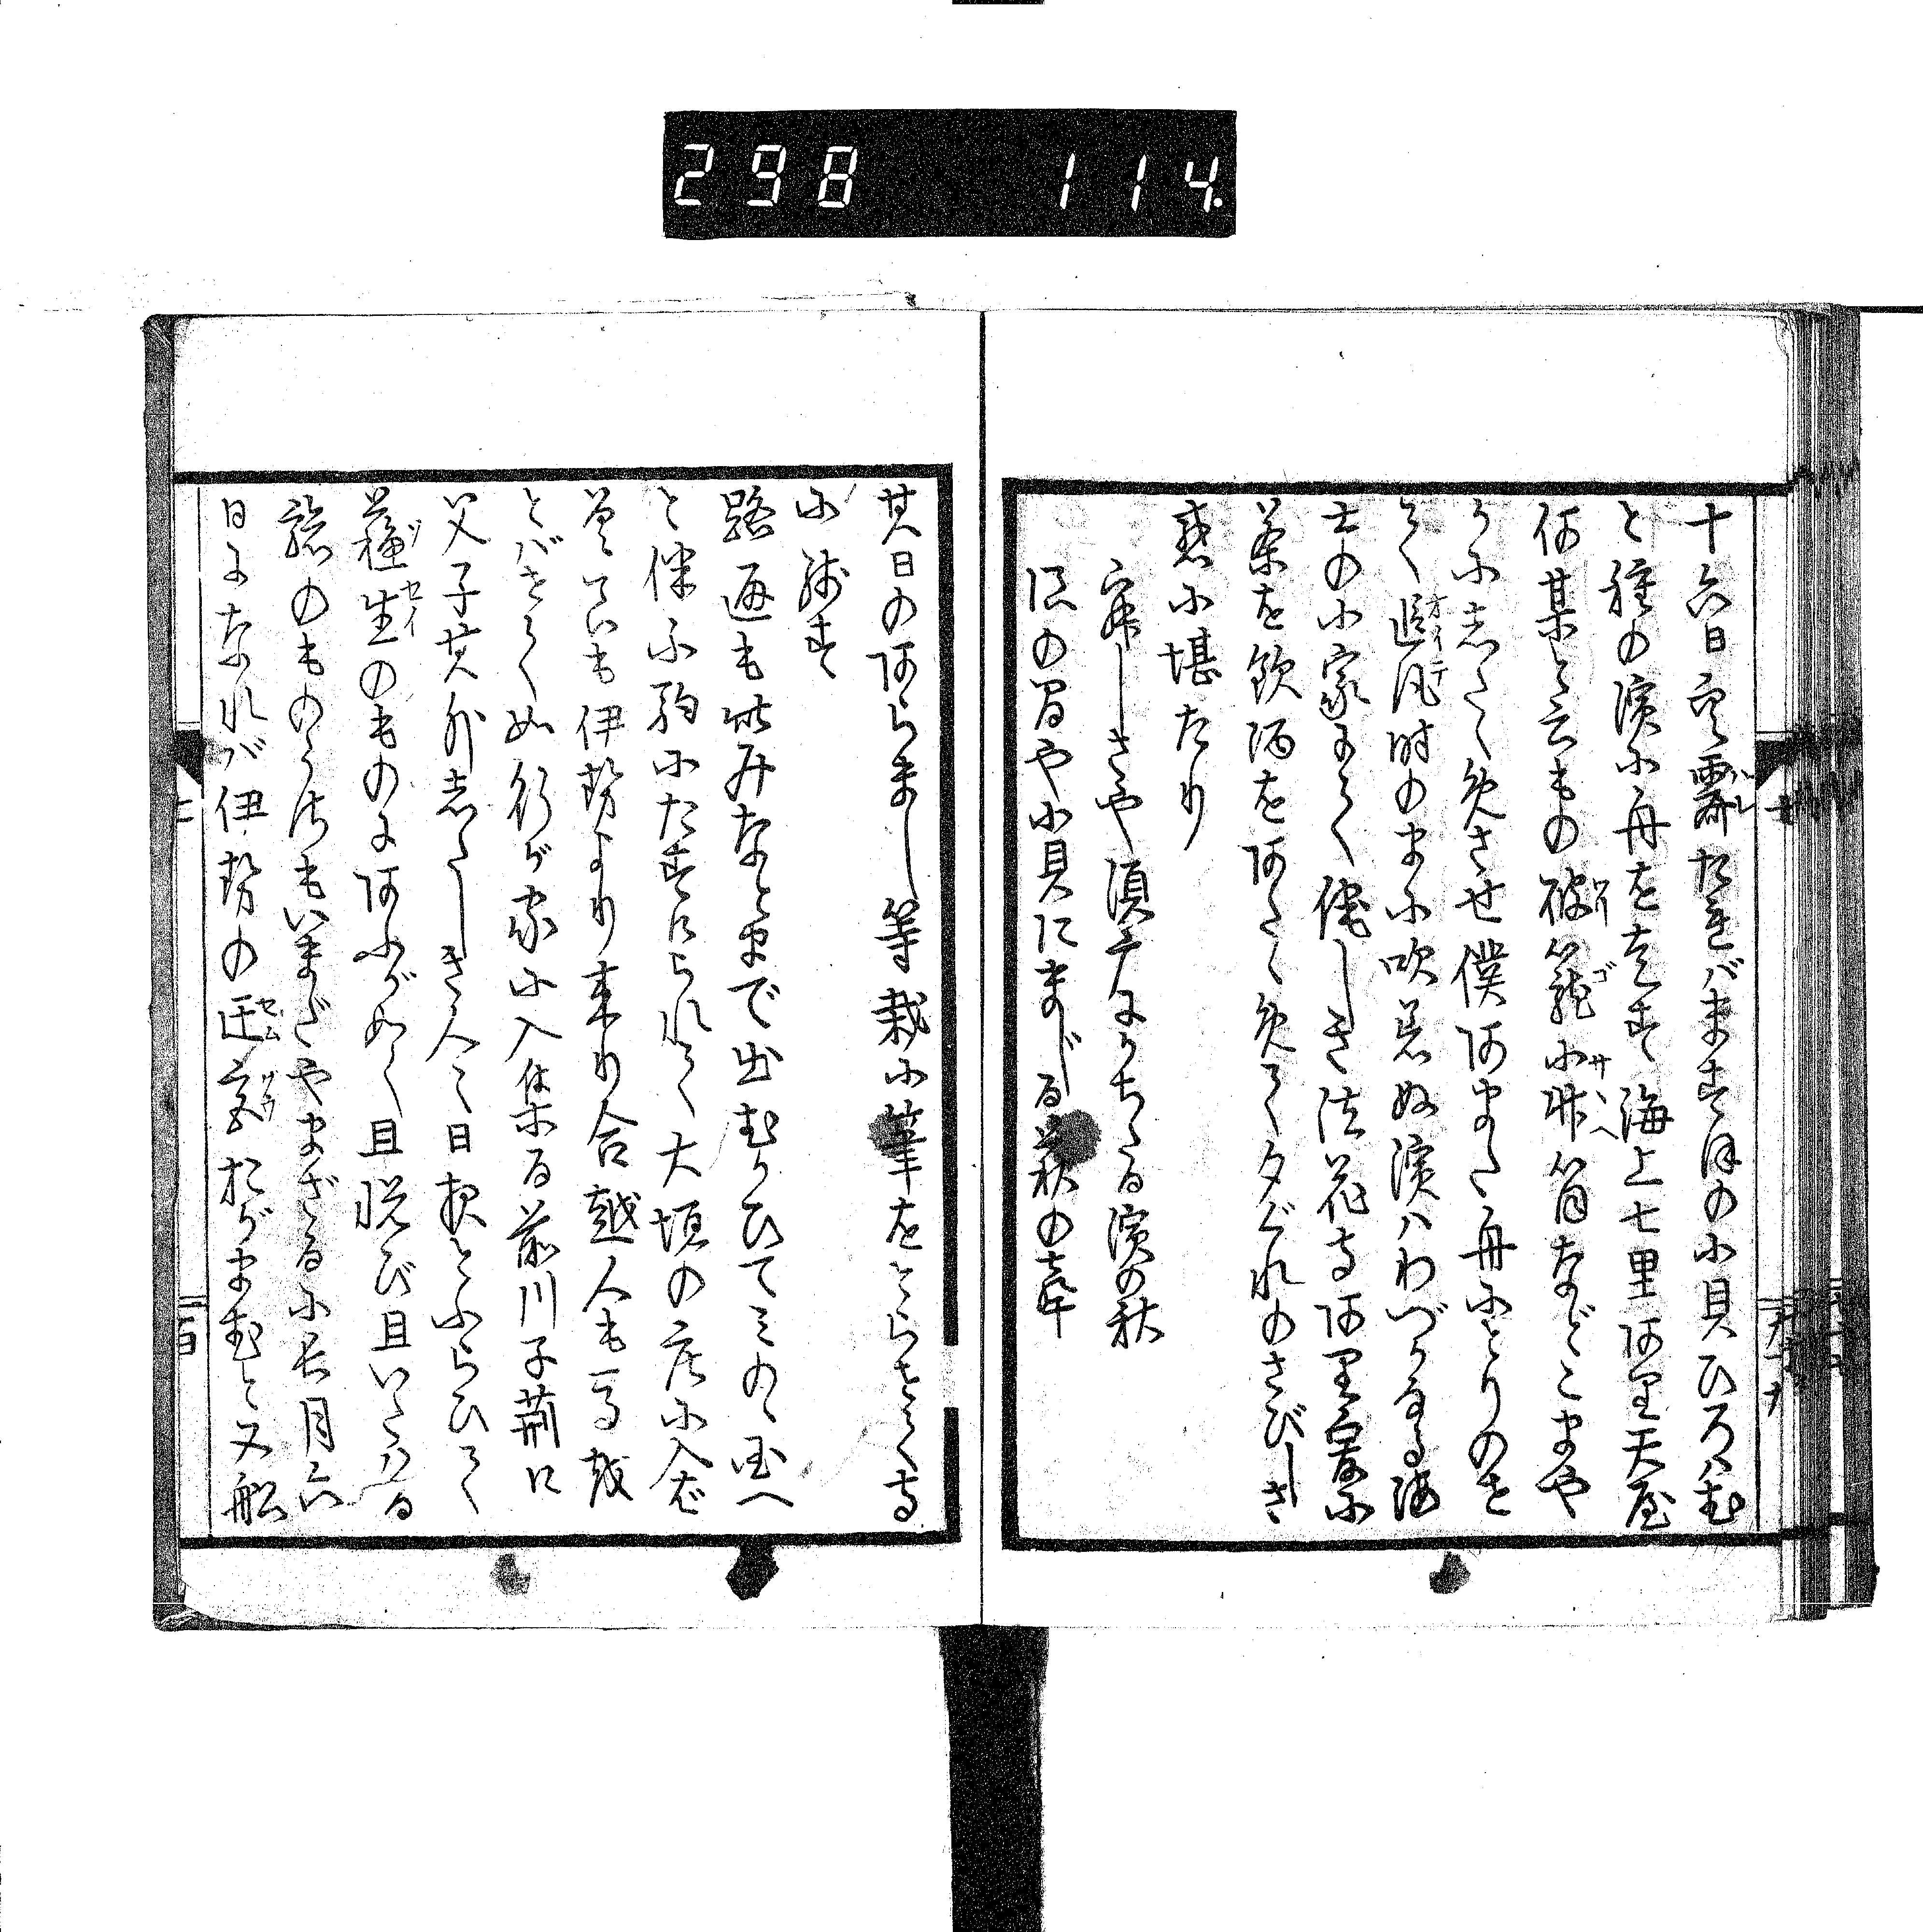 298 114.
十六日空霽たればますほの小貝ひろはむ
と種の濱に舟をはす海上七里あり天屋
何某と云もの破籠小竹筒などこまや
かにしたゝめさせ僕あまた舟にとりのせ
て追風時のまに吹着ぬ濱はわづかなる海
士の小家にて侘しき法花寺あり爰に
茶を飲酒をあたゝめて夕ぐれのさびしさ
感に堪たり
寂しさや須广にかちたる濱の秋
浪の間や小貝にまじる萩の塵
其日のあらまし等栽に筆をとらせて寺
に残す
路通も此みなとまで出むかひてみのゝ国へ
と伴ふ駒にたすけられて大垣の庄に入ば
曽良も伊勢より来り合越人も馬を
とばせて如行が家に入集る前川子荊口
父子其外したしき人々日夜とふらひて
蘓生のものにあふがごとく且悦び且いたはる
旅のものうさもいまだやまざるに長月六
日になれば伊勢の迁宮おがまむと又舩